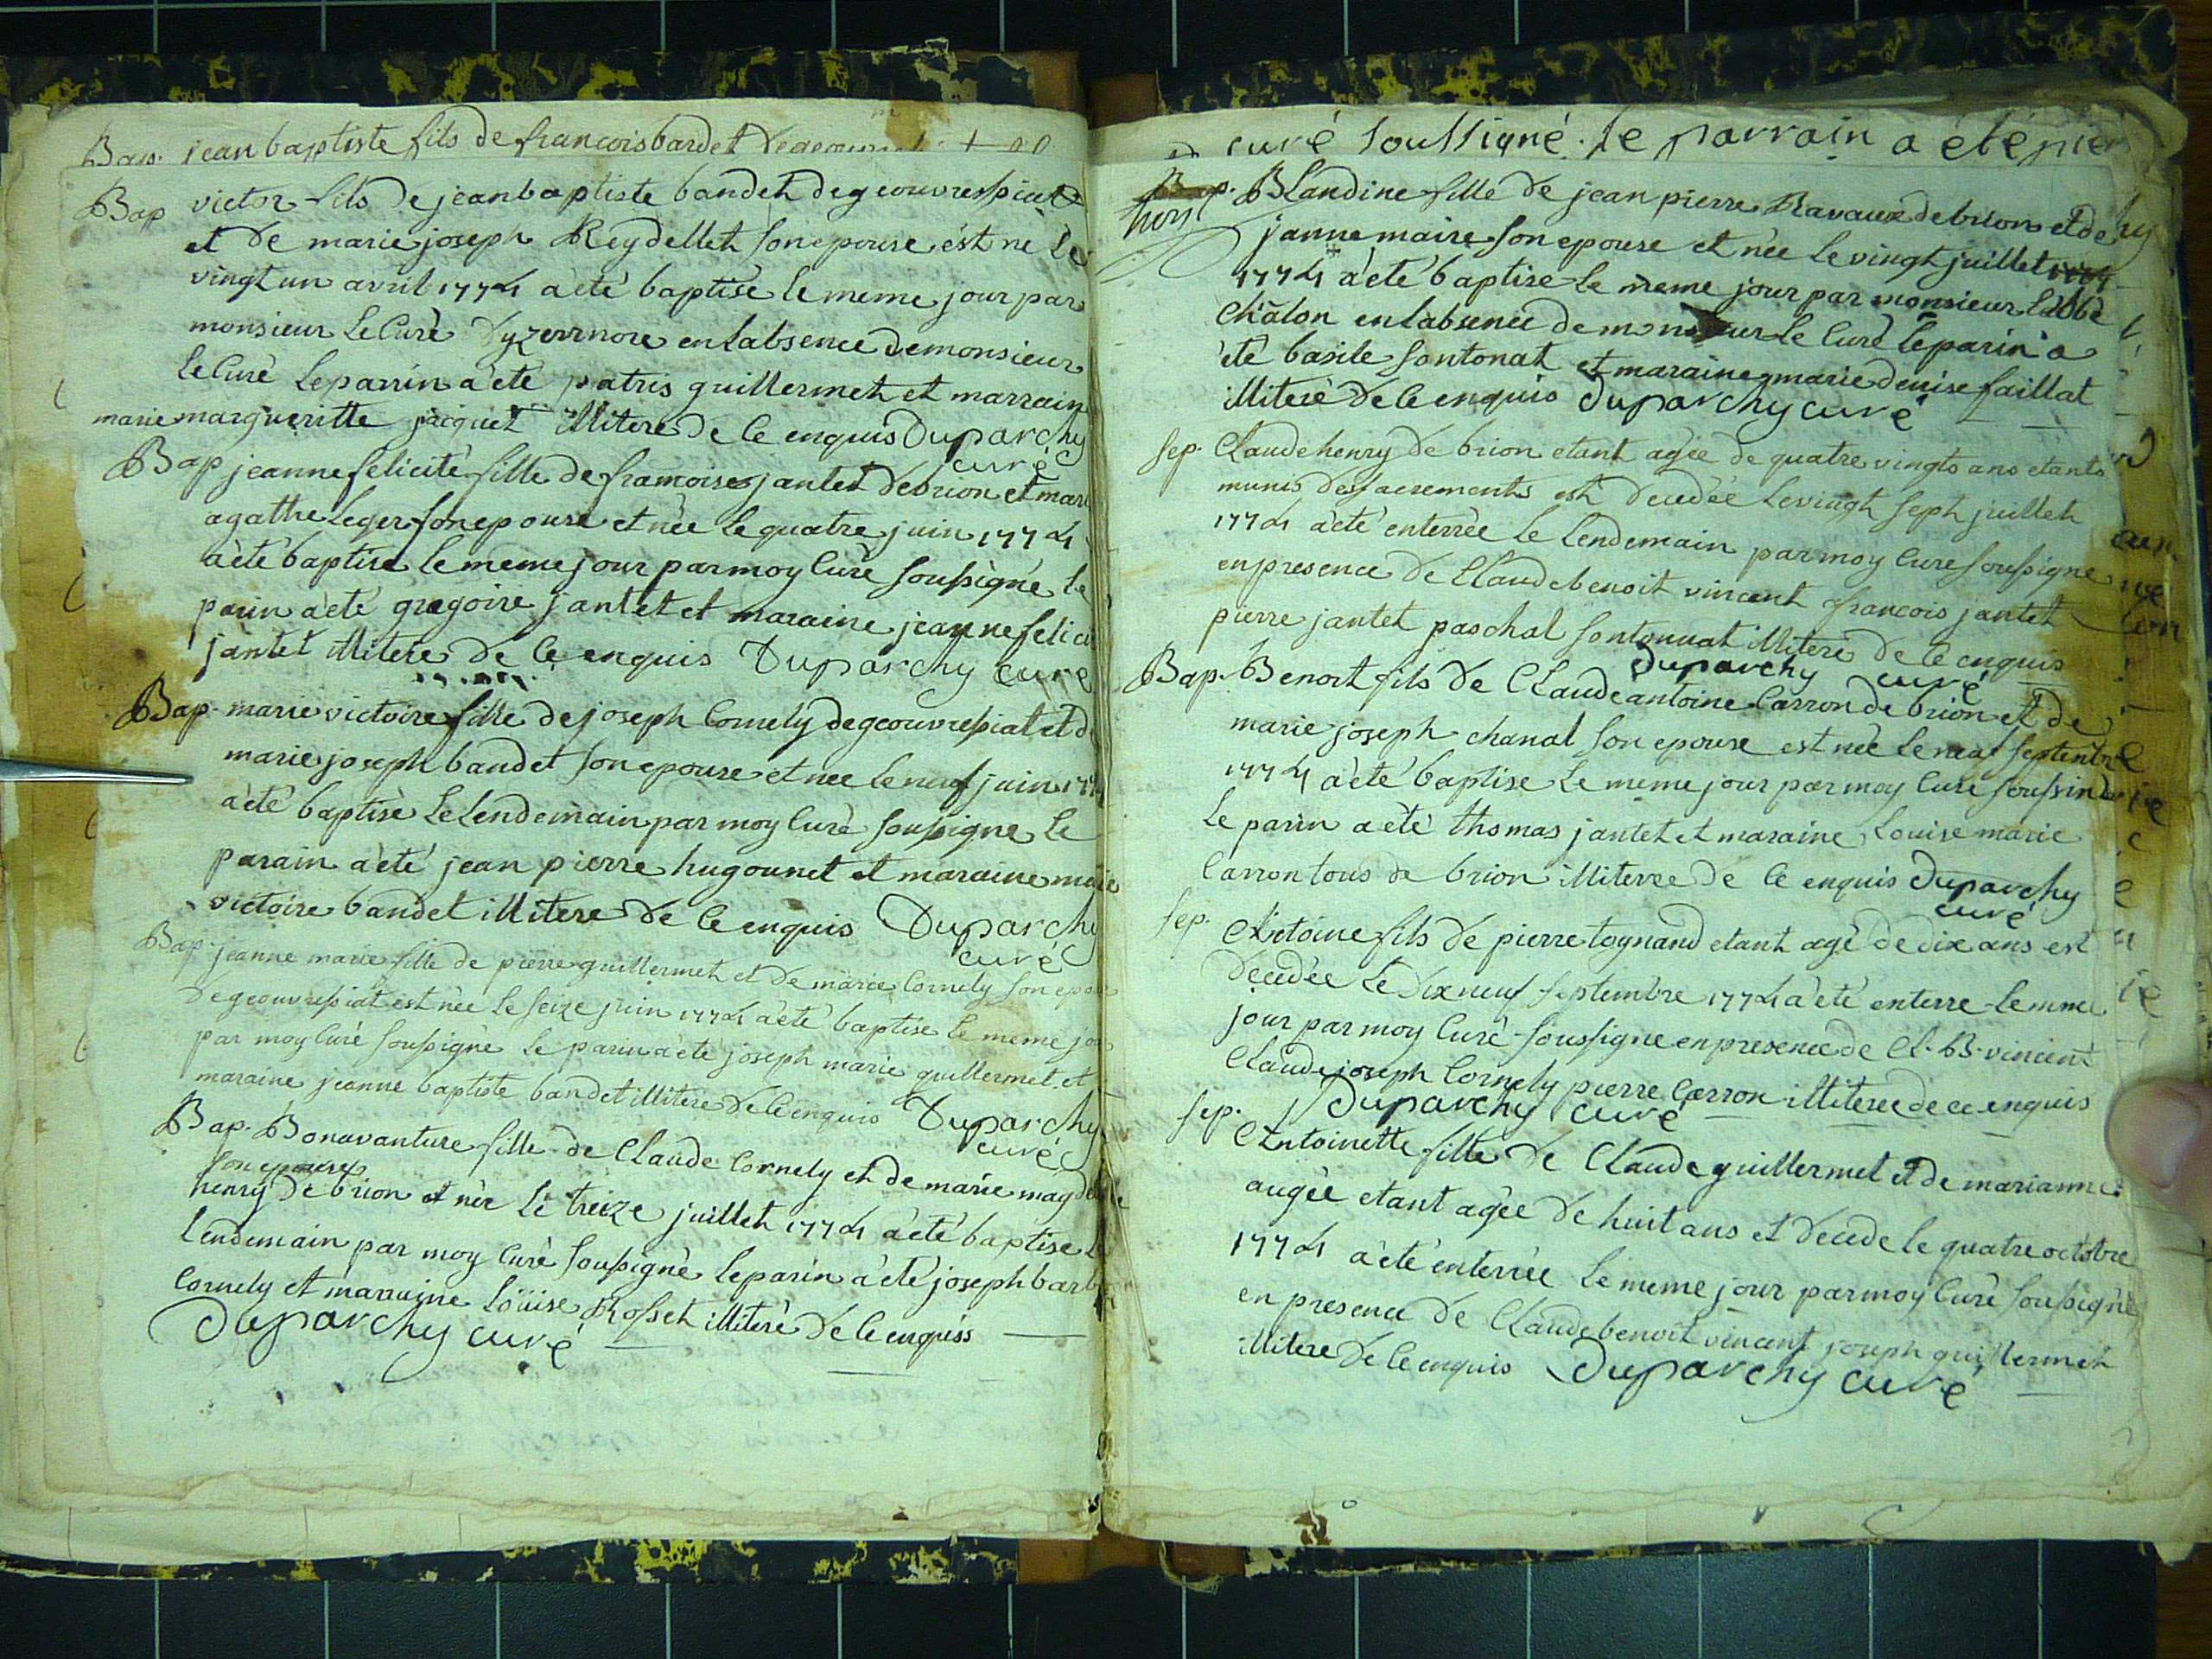 Bap. jean baptiste fils de francois bardet
Bap victor fils de jean baptiste bandet degeouvressiat
et de marie joseph Reydellet son epouse est ne le
vingt un avril 1774 a été baptisé le meme jour par
monsieur le Curé Dyzernore en labsence de monsieur
le Curé le parrin a été patris guillermet et marrain
marie margueritte jacquet illiteré de ce enquis Duparchy
curé
Bap jeanne felicité fille de francoise jantet de brion et mari
agathe Leger son epouse et née le quatre juin 1774
a été baptisé le meme jour par moy curé soussigné le
parin a été gregoire jantet et maraine jeanne felici
jantet illiteré de ce enquis Duparchy curé
Bap. marie victoire fille de joseph Cornely degeouvressiat et d
marie joseph bandet son epouse et nee le neuf juin 177
a été baptisé le lendemain par moy Curé soussigne le
parain a été jean pierre hugounet et maraine marie
victoire bandet illitere de ce enquis Duparchy
curé
Bap. jeanne marie fille de pierre guillermet et de marie Cornely son epouse
degeouvressiat est née le seize juin 1774 a été baptise le meme jou
par moy Curé soussigné le parin a été joseph marie guillermet et
maraine jeanne baptiste bandet illitere de ce enquis Duparchy
curé
Bap. Bonavanture fille de Claude Cornely et de marie magdel
son epouse
henry de brion et née le treize juillet 1774 a été baptise l
lendemain par moy Curé soussigné le parin a été joseph barb
Cornely et marraine Loüise Rosset illiteré de ce enquiss
Duparchy curé
curé soussigné. le parrain a été pier
Bap. Blandine fille de jean pierre Ravaux de brion et de
hors
janne maire son epouse et née le vingt juillet
1774 a été baptise le meme jour par monsieur labbé
Chálon en labsence de monsieur le Curé le parin a
été basile sontonat et maraine marie denise faillat
illiteré de ce enquis Duparchy curé
sep. Claude henry de brion etant agée de quatre vingts ans etants
munis des sacrements est decedée le vingt sept juillet
1774 a été enterrée le lendemain par moy Cure soussigne
en presence de Claude benoit vincent francois jantet
pierre jantet paschal sontonnat illitere de ce enquis
Duparchy curé
Bap. Benoit fils de Claude antoine Carron de brion et de
marie joseph chanal son epouse est née le neuf septembre
1774 a été baptise le meme jour par moy Curé
le parin a été thomas jantet et maraine Louise marie
Carron tous de brion illiterée de ce enquis Duparchy
curé
sep. Antoine fils de pierre tognand etant agé de dix ans est
decedée le dix neuf septembre 1774 a été enterre le meme
jour par moy Curé soussigne en presence de Cl. B. vincent
Claude joseph Cornely pierre Carron illiterée de ce enquis
Duparchy curé
sep. Antoinette fille de Claude guillermet et de marianne
augée etant agée de huit ans et decede le quatre octobre
1774 a été enterrée le meme jour par moy Curé soussigné
en presence de Claude benoit vincent joseph guillermet
illitere de ce enquis Duparchy curé